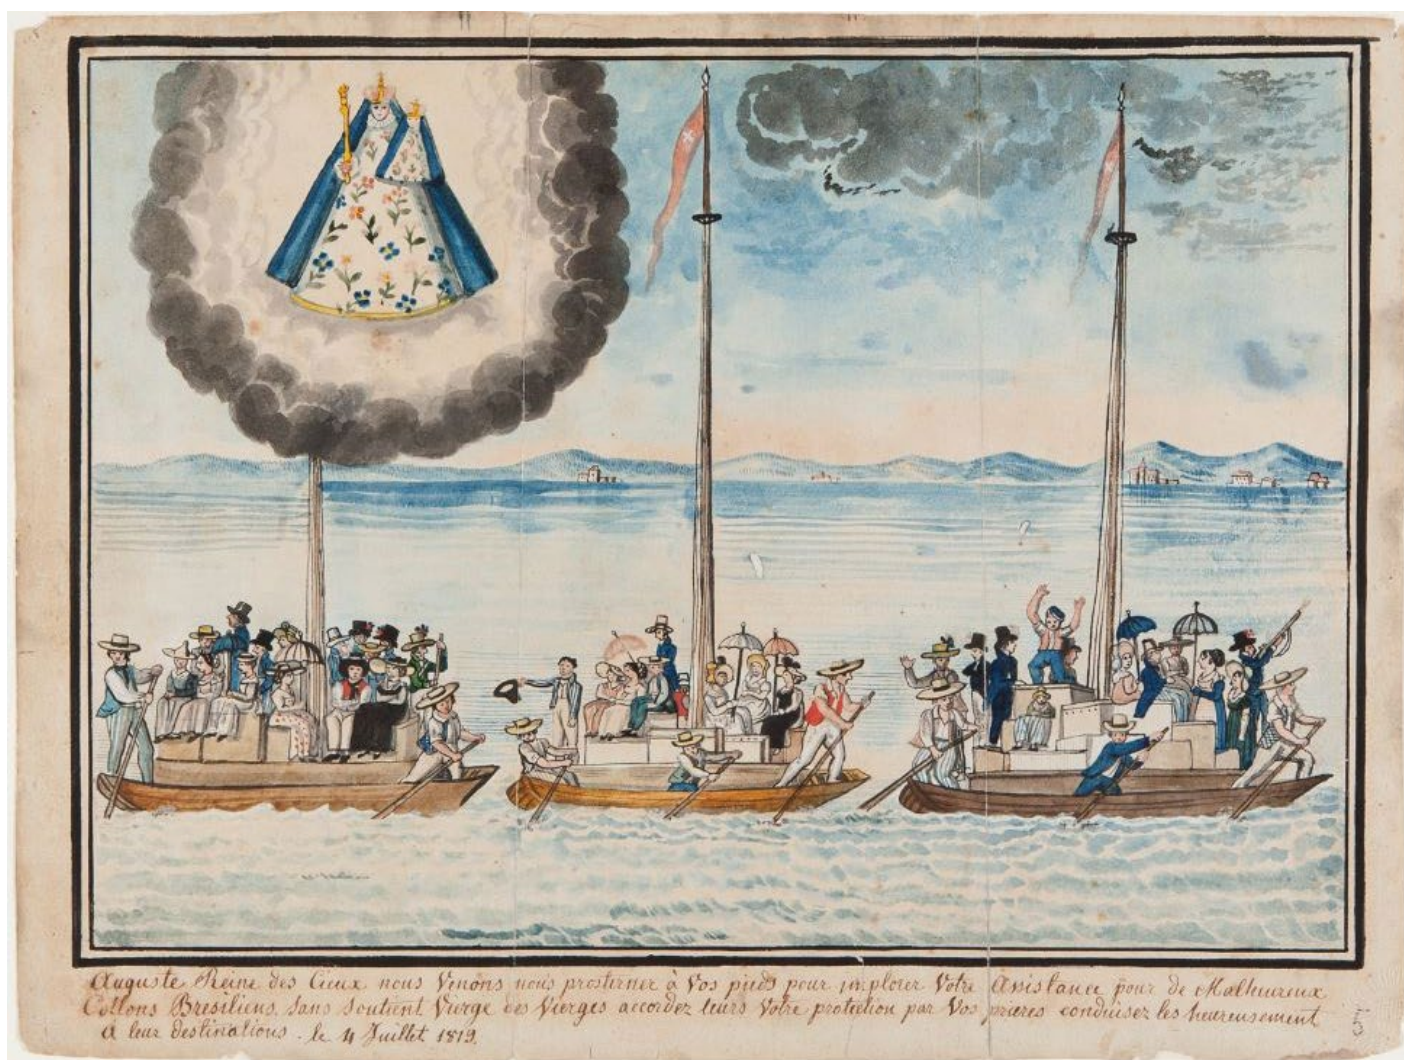 Auguste Reine des Cieux nous Venons nous prosterner à Vos pieds pour implorer Votre Assistance pour de Malheureux
Collons Bresiliens, sans soutient Vierge des Vierges accordez leurs Votre protection par Vos prieres conduisez les heureusement
à leur destinations. le 4 Juillet 1819.